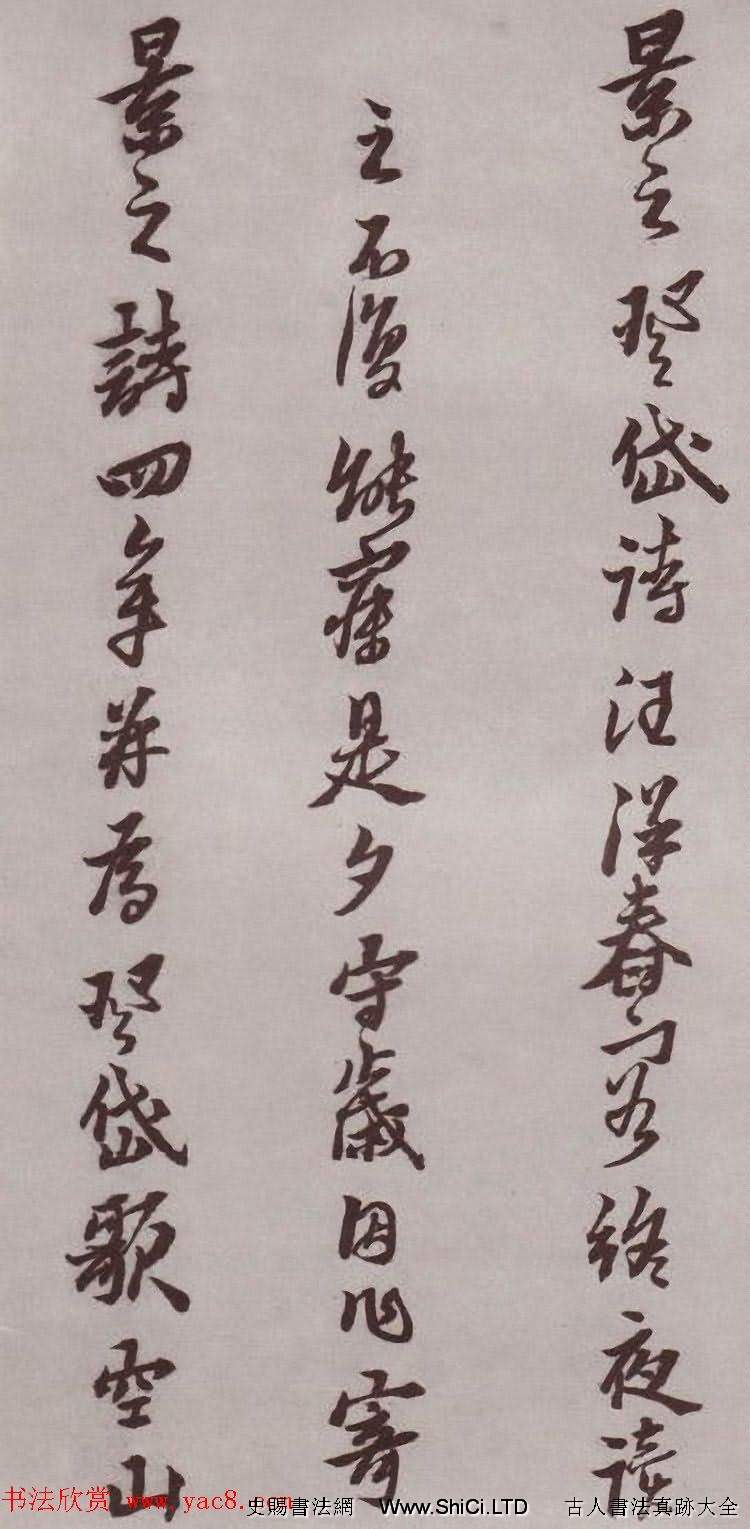 景之登岱詩汪洋舂容終夜讀
之不復能寐是夕守歲因作寄
景之詩四并為登岱歌空山
书法欣赏 www.yac8.com
史賜書法網 Www.ShiCi.LTD 古人書法真跡大全